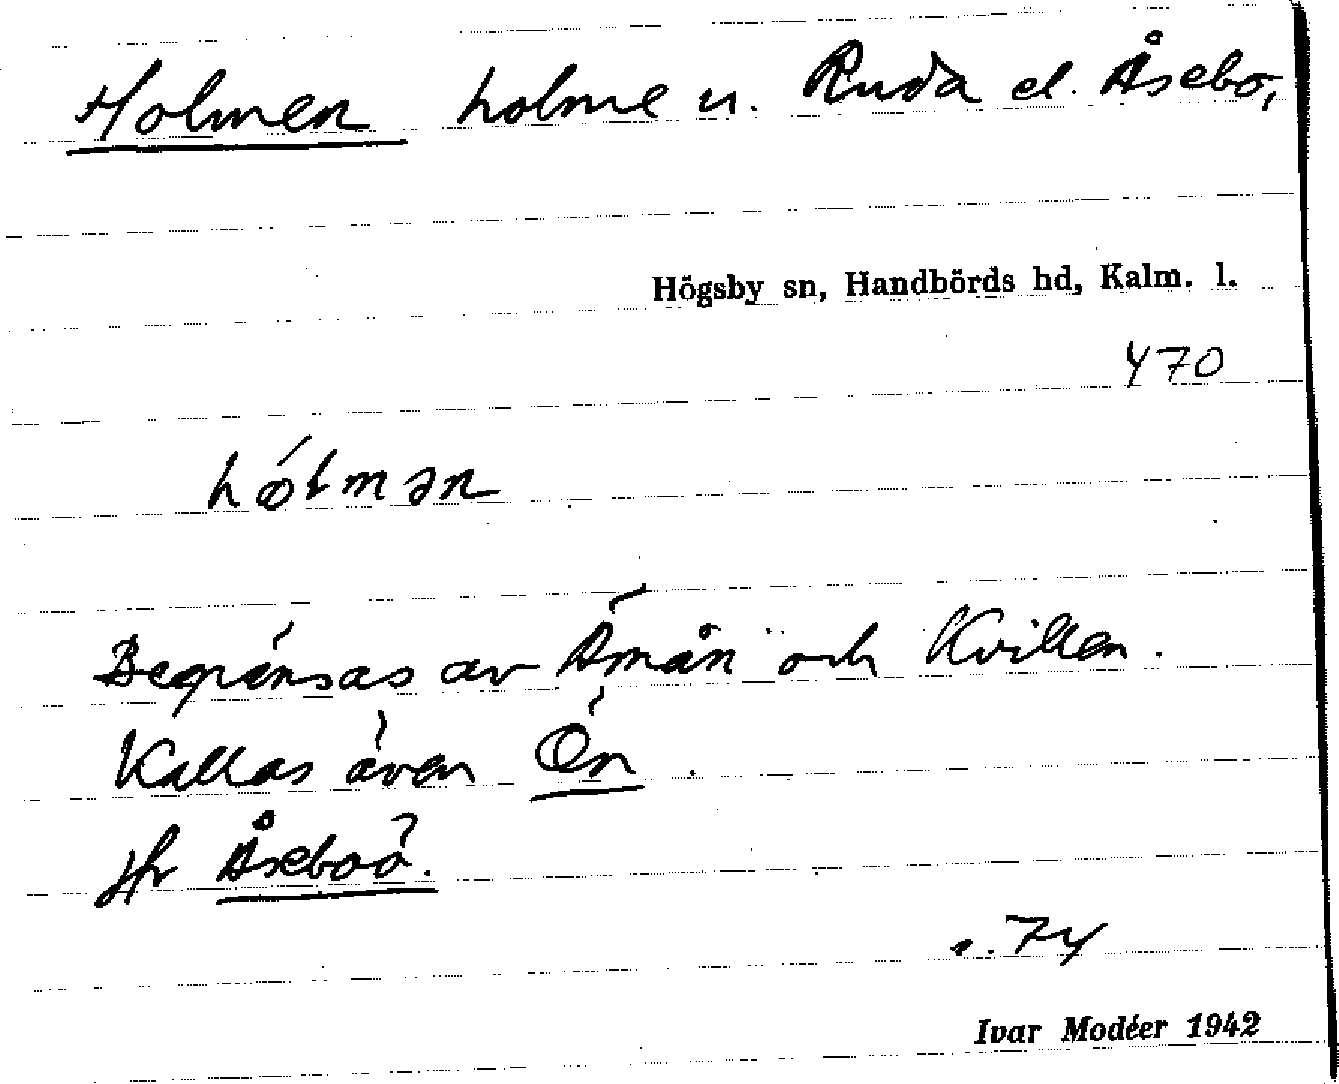 Holmen holme u. Ruda el. Åsebo,
Högsby sn, Handbörds hd, Kalm. l.
470
hólmən
Begränsas av Åmån och Kvillen.
Kallas även Ön.
Jfr Åseboö.
s. 74
Ivar Modéer 1942